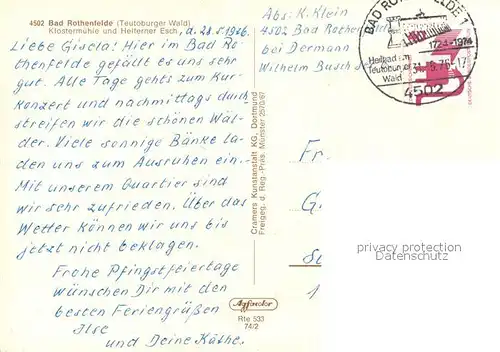 4502 Bad Rothenfelde (Teutoburger Wald)
Klostermühle und Helferner Esch, d. 28.5.1976.
Liebe Gisela! Hier im Bad Ro-
thenfelde gefällt es uns sehr
gut. Alle Tage gehts zum Kur-
konzert und nachmittags durch-
streifen wir die schönen Wäl-
der. Viele sonnige Bänke la-
den uns zum Ausruhen ein.-
Mit unserem Quartier sind
wir sehr zufrieden. Über das
Wetter können wir uns bis
jetzt nicht beklagen.
Frohe Pfingstfeiertage
wünschen Dir mit den
besten Feriengrüßen
Ilse
und Deine Käthe.
Cramers Kunstanstalt KG, Dortmund
Freigeg. d. Reg.-Präs. Münster 2570/67
Agfacolor
Rte 533
74/2
Abs: K. Klein
4502 Bad Rothenfelde
bei Dermann
Wilhelm Busch
BAD ROTHENFELDE 1
1724-1974
Heilbad im
Teutoburger
Wald
31.5.76-17
4502
Fr
G
1
privates Angebot
www.ansichtskartenversand.com